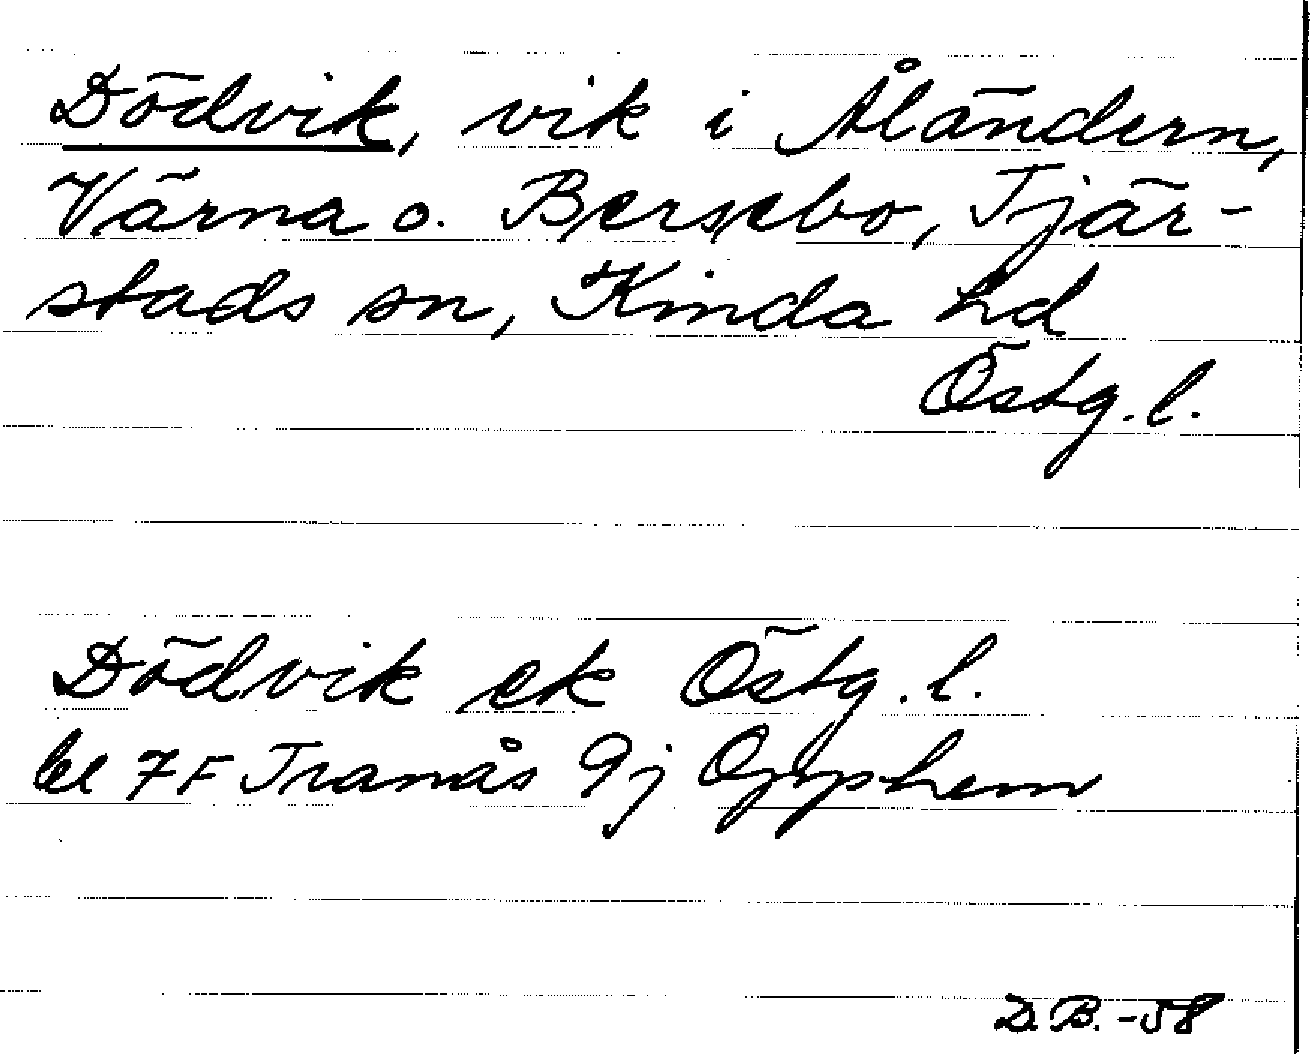 Dödvik, vik i Åländern,
Värna o. Bersebo, Tjär-
stads sn, Kinda hd
Östg. l.
Dödvik ek Östg. l.
bl 7F Tranås 9j Opphem
D.B. -58